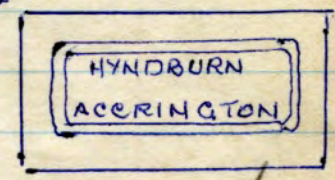 HYNDBURN
ACCRINGTON